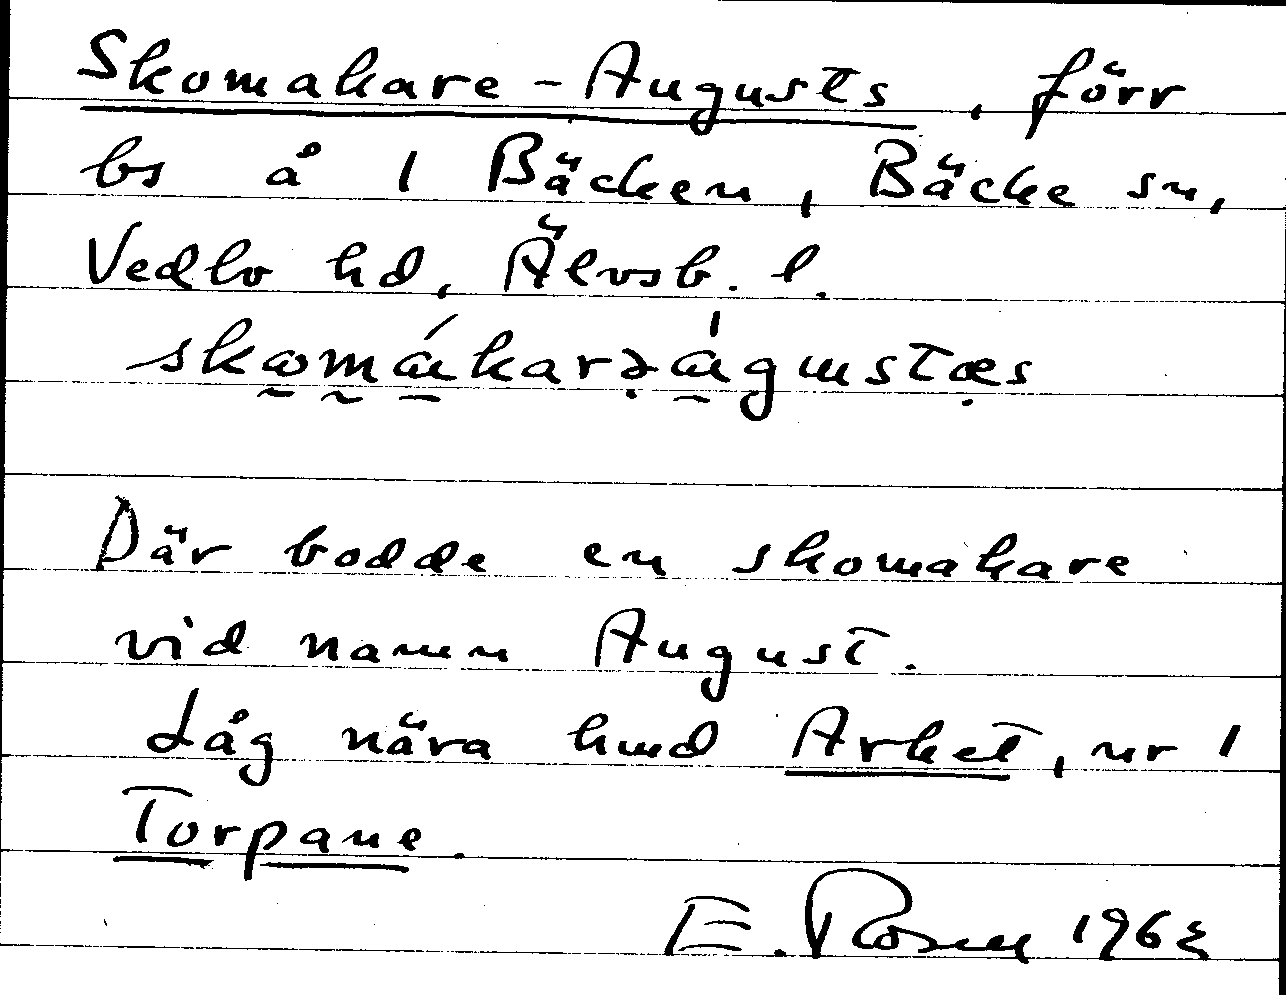 Skomakare-Augusts, förr
bs å 1 Bäcken, Bäcke sn,
Vedbo hd, Älvsb. l.
Där bodde en skomakare
vid namn August.
Låg nära hmd Arket, nr 1
Torpane.
E. Rosen 196